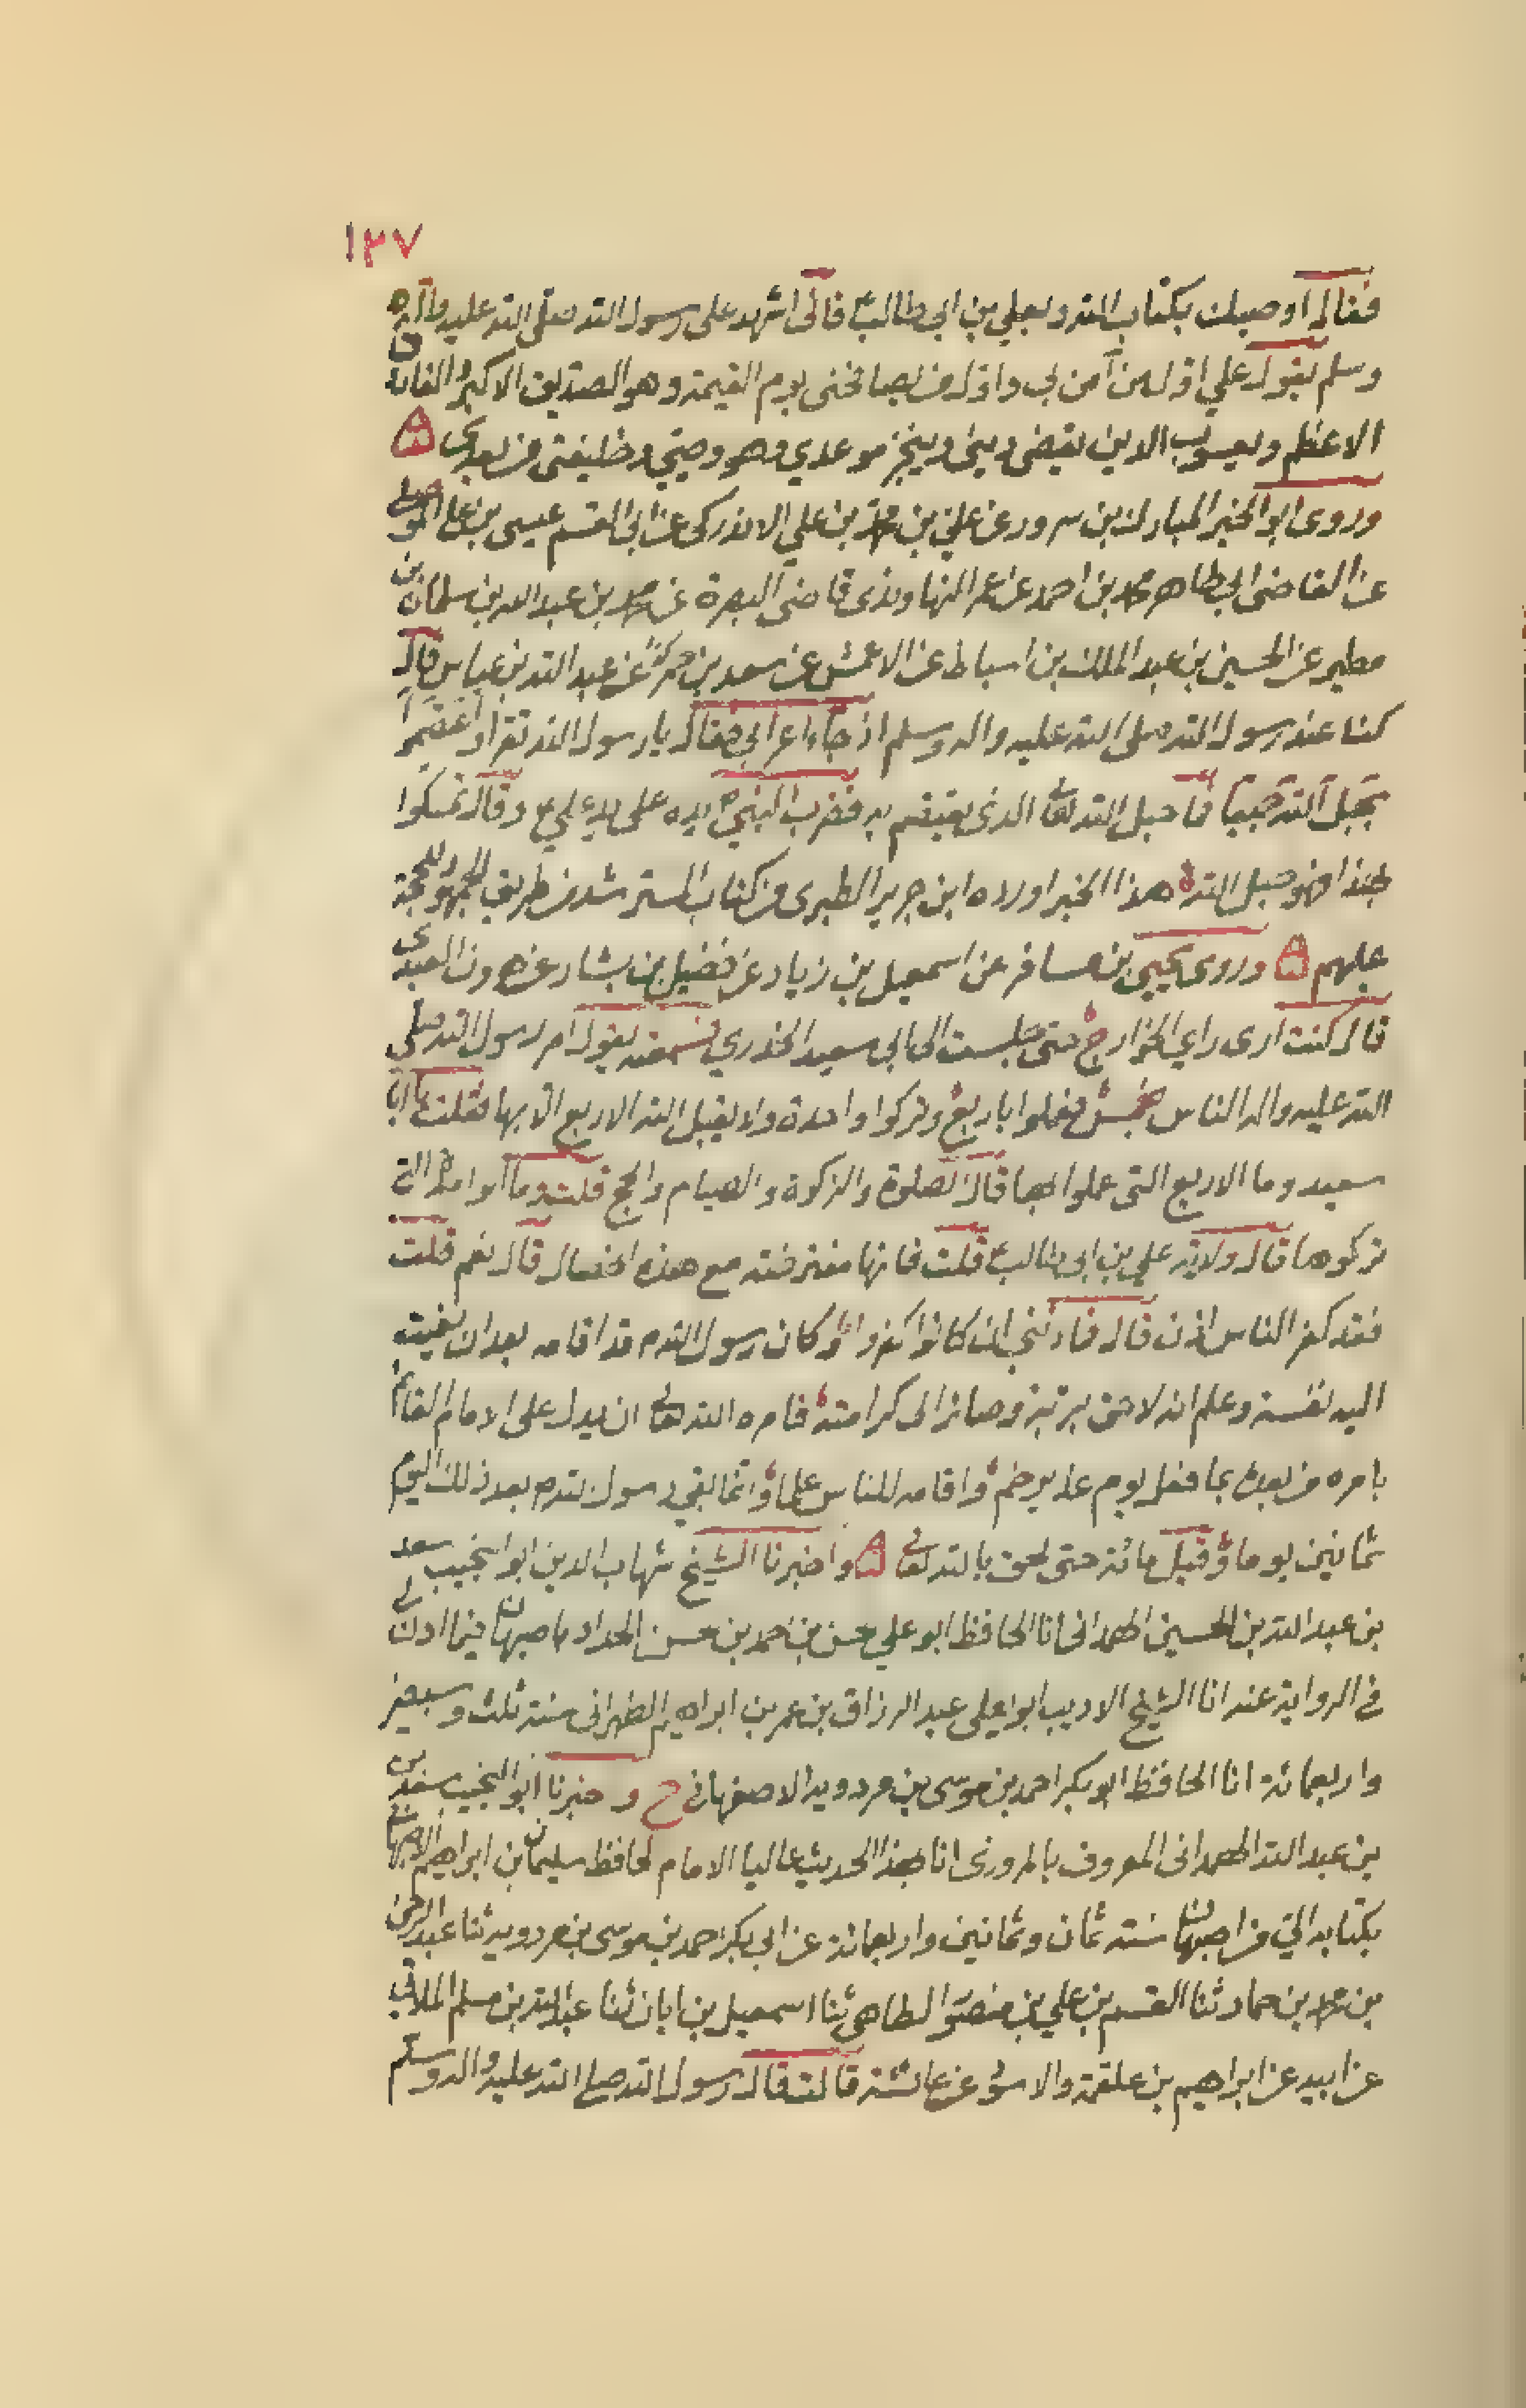 ١٣٧
فقال اوصيك بكتاب الله وبعلي بن ابي طالب ع فانى اشهد على رسول الله صلى الله عليه وآله
وسلم يقول علي اول من آمن بي واول من يصافحني يوم القيمة وهو الصديق الاكبر والفاروق
الاعظم ويعسوب الدين يقضى ديني وينجز موعدي وهو وصيي وخليفتي من بعدي
وروى ابو الخير المبارك بن سرور عن علي بن محمد بن علي الاندركى عن ابى القسم عيسى بن علي الموصلى
عن القاضى ابى طاهر محمد بن احمد عن عمر النهاوندى قاضى البصرة عن محمد بن عبد الله بن سلمان بن
مطير عن الحسين بن عبد الملك بن اسباط عن الاعمش عن سعد بن عبد الله بن عباس قال
كنا عند رسول الله صلى الله عليه واله وسلم اذ جاء اعرابي فقال يا رسول الله تقرا واعتصموا
بحبل الله جميعا فما حبل الله تعالى الذى يعتصم به فضرب النبي ص يده على يد علي ع وقال تمسكوا
بهذا فهو حبل الله هذا الخبر اورده ابن جرير الطبرى فى كتاب المسترشد من طريق الجمهور للحجة
عليهم وروى يحيى بن مسافر عن اسمعيل بن زياد عن فضيل بن بشار عن هرون العبدى
قال كنت ارى راي الخوارج حتى جلست الى ابى سعيد الخدري فسمعته يقول امر رسول الله صلى
الله عليه واله الناس بخمس فعملوا باربع وتركوا واحدة ولا يقبل الله الاربع الا بها فقلت يا ابا
سعيد وما الاربع التى عملوا بها قال الصلوة والزكوة والصيام والحج قلت وما الواحدة التي
تركوها قال ولاية علي بن ابى طالب ع قلت فانها مفترضة مع هذه الخصال قال نعم قلت
فقد كفر الناس اذن قال فما ذنبى ان كانوا كفروا وكان رسول الله ص قد اقامه بعد ان نعيت
اليه نفسه وعلم انه لاحق بربه وصائر الى كرامته فامره الله تعالى ان يدل على الامام القائم
بامره من بعده بما فعل يوم غدير خم واقامه للناس علما وانما بقي رسول الله ص بعد ذلك اليوم
ثمانين يوما وقيل مائة حتى لحق بالله تعالى واخبرنا الشيخ شهاب الدين ابو النجيب سعد
بن عبد الله بن الحسين الهمدانى انا الحافظ ابو علي حسن بن احمد بن حسن الحداد باصبهان فيما اذن لى
فى الرواية عنه انا الشيخ الاديب ابو يعلى عبد الرزاق بن عمر بن ابراهيم الطهرانى سنة ثلث وسبعين
واربعمائة انا الحافظ ابو بكر احمد بن موسى بن مردويه الاصفهانى ح و خبرنا ابو النجيب سعد بن
بن عبد الله الهمدانى المعروف بالمروزى انا بهذا الحديث عاليا الامام لحافظ سليمان بن ابراهيم الاصبهانى
بكتابه الي من اصبهان سنة ثمان وثمانين واربعمائة عن ابى بكر احمد بن موسى بن مردويه ثنا عبد الرحمن
بن محمد بن حماد ثنا القسم بن علي بن منصور الطاهى ثنا اسمعيل بن ابان ثنا عبد الله بن مسلم الملائي
عن ابيه عن ابراهيم بن علقمة والاسود عن عائشة قالت قال رسول الله صلى الله عليه واله وسلم